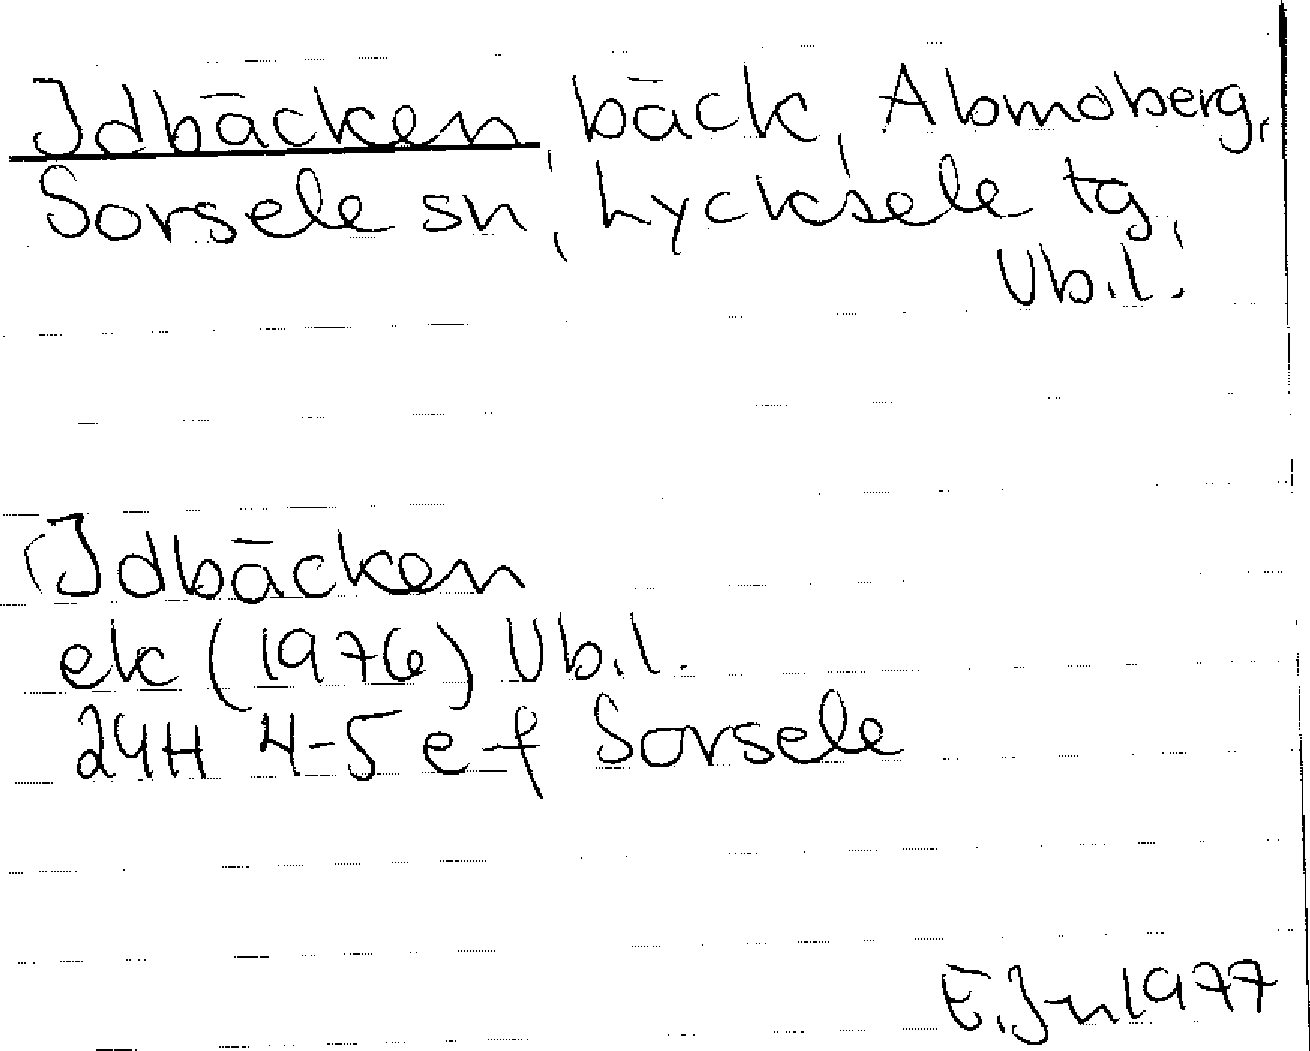 Idbäcken, bäck, Abmoberg,
Sorsele sn, Lycksele tg,
Vb.l.
Idbäcken
ek (1976) Vb.l.
24H 4-5 e-f Sorsele
E. Jn 1977